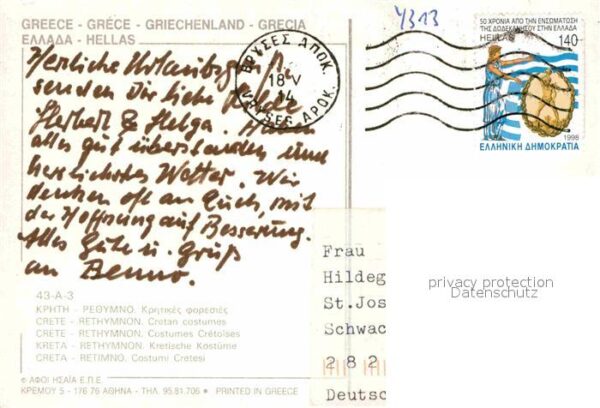 GREECE - GRÉCE - GRIECHENLAND - GRECIA
ΕΛΛΑΔΑ - HELLAS
4313
50 ΧΡΟΝΙΑ ΑΠΟ ΤΗΝ ΕΝΣΩΜΑΤΩΣΗ
ΤΗΣ ΔΩΔΕΚΑΝΗΣΟΥ ΣΤΗΝ ΕΛΛΑΔΑ
HELLAS 140
1998
ΕΛΛΗΝΙΚΗ ΔΗΜΟΚΡΑΤΙΑ
ΒΡΥΣΕΣ ΑΠΟΚ.
18 V
14
VRISES APOK.
Herzliche Urlaubsgrüße
senden Dir liebe
Herbert & Helga.
alles gut überstanden und
herrlichstes Wetter. Wir
denken oft an Euch, mit
der Hoffnung auf Besserung.
Alles Gute u. Gruß
an Benno.
Frau
Hildeg
St.Jos
Schwac
282
Deutsc
privacy protection
Datenschutz
43-A-3
ΚΡΗΤΗ - ΡΕΘΥΜΝΟ. Κρητικές φορεσιές
CRETE - RETHYMNON. Cretan costumes
CRETE - RETHYMNON. Costumes Crétoises
KRETA - RETHYMNON. Kretische Kostüme
CRETA - RETIMNO. Costumi Cretesi
© ΑΦΟΙ ΗΣΑΪΑ Ε.Π.Ε.
ΚΡΕΜΟΥ 5 - 176 76 ΑΘΗΝΑ - ΤΗΛ. 95.81.706 • PRINTED IN GREECE